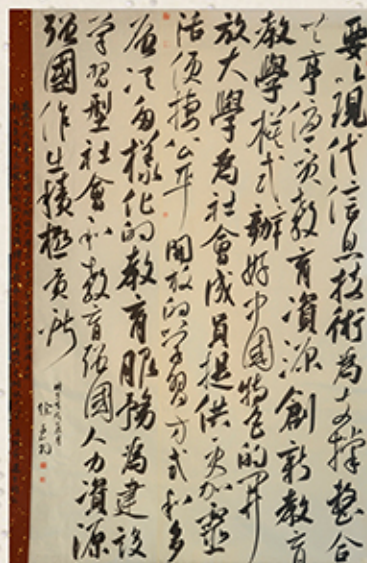 要以現代信息技術為支撐整合
共享優質教育資源創新教育
教學模式辦好中國特色的開
放大學為社會成員提供更加靈
活便捷公平開放的學習方式和多
層次多樣化的教育服務為建設
學習型社會和教育強國人力資源
強國作出積極貢獻